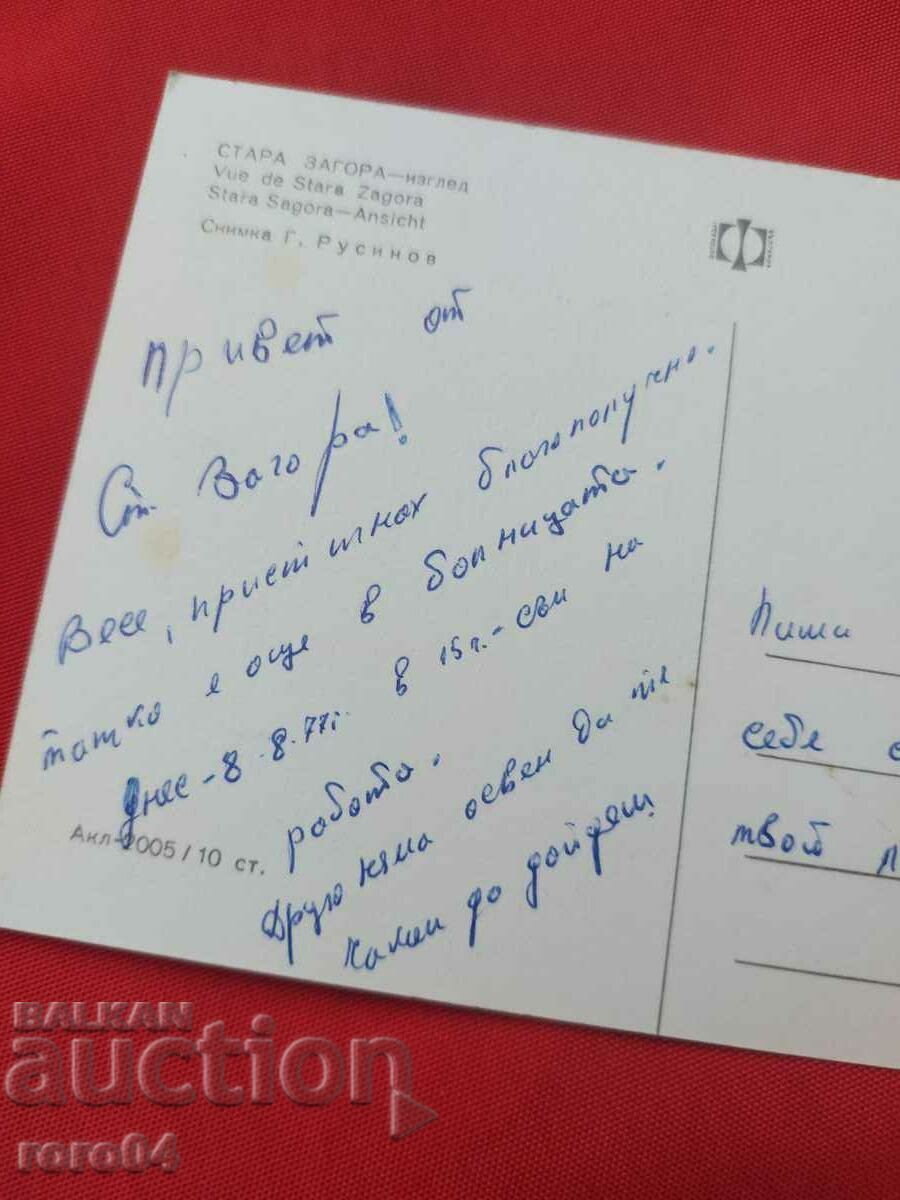 СТАРА ЗАГОРА—изглед
Vue de Stara Zagora
Stara Sagora—Ansicht
Снимка Г. Русинов
привет от
Ст. Загора!
Весе, пристигнах благополучно.
татко е още в болницата.
днес - 8.8.77г. в 15г. - съм на
работа.
Друго няма освен да те
каня да дойдеш
Акл-2005/10 ст.
Пиши
себе
твой
BALKAN
auction
roro04